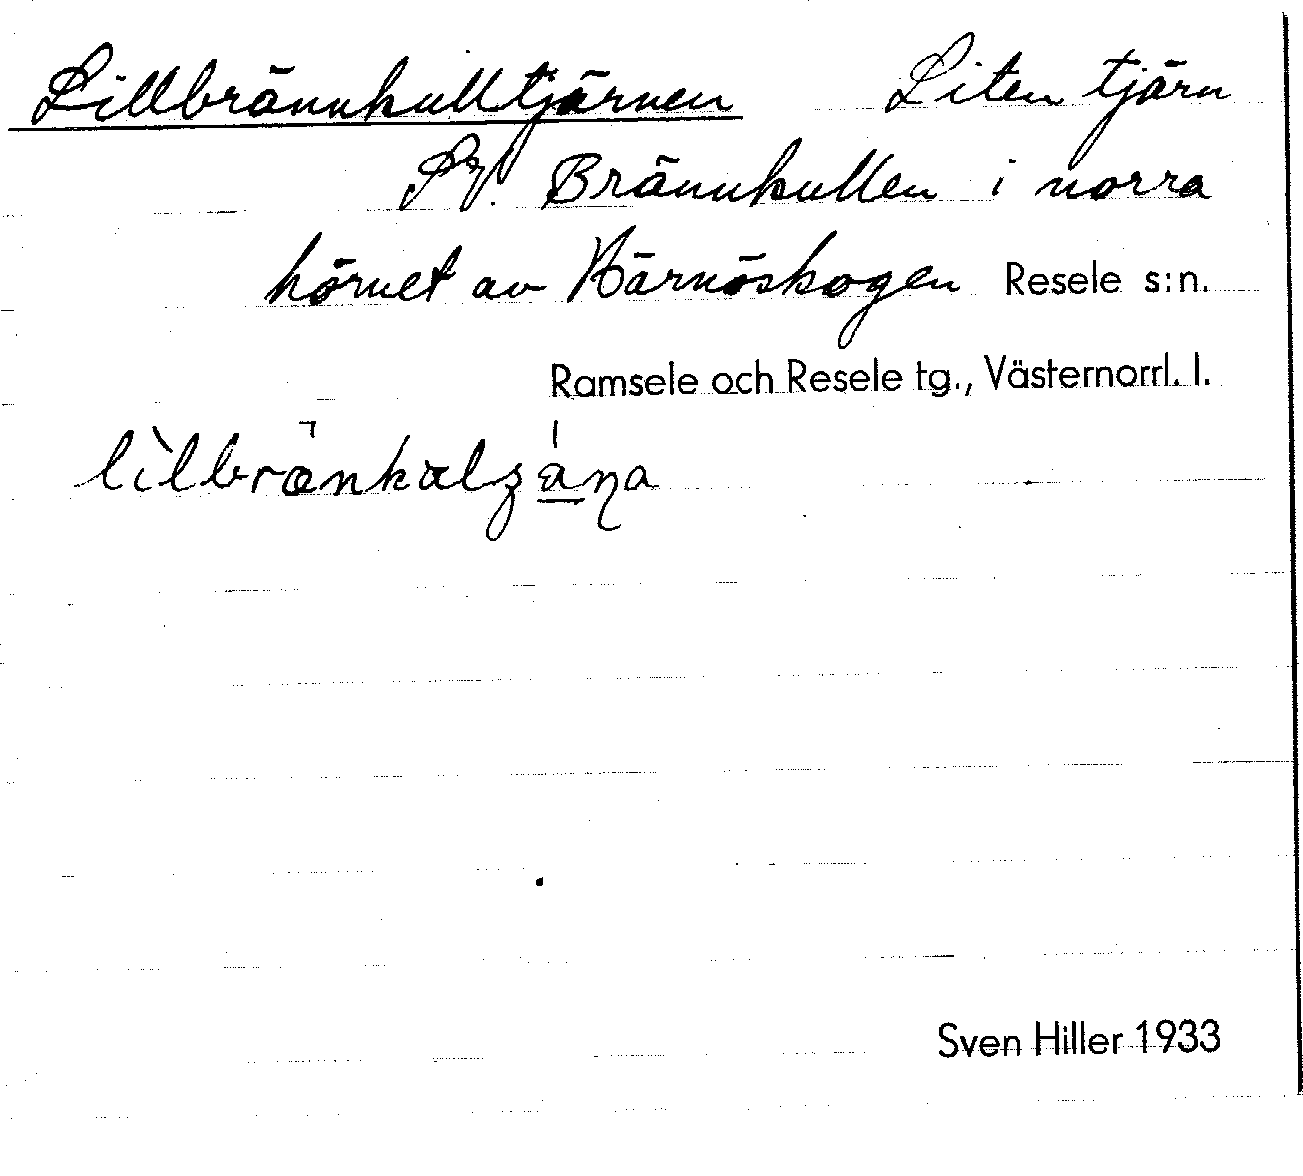 Lillbrännkulltjärnen Liten tjärn
SV. Brännkullen i norra
hörnet av Härnöskogen Resele s:n.
Ramsele och Resele tg., Västernorrl. l.
Sven Hiller 1933